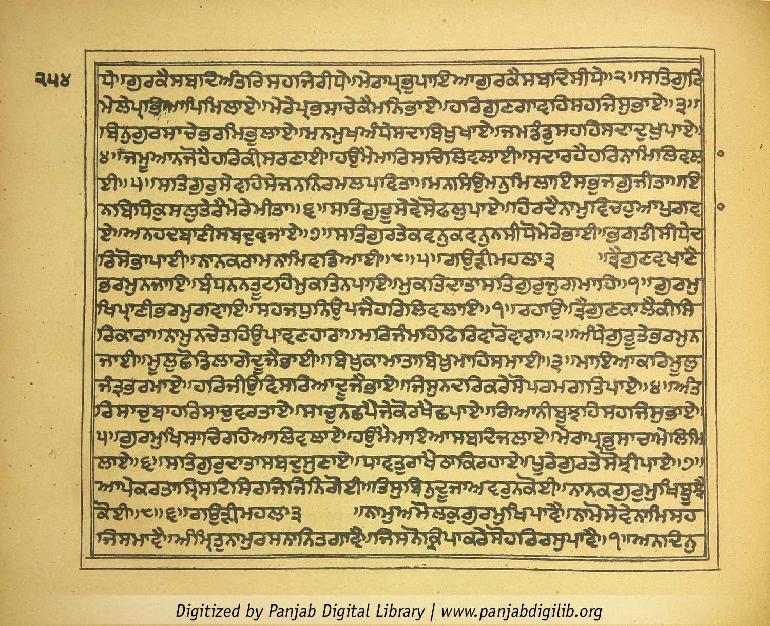 ੨੫੪
ਧੇ॥ਗੁਰਕੈਸਬਦਿਅੰਤਰਿਸਹਜਿਰੀਧੇ॥ਮੇਰਾਪ੍ਰਭੁਪਾਇਆਗੁਰਕੈਸਬਦਿਸੀਧੇ॥੨॥ਸਤਿਗੁਰਿ
ਮੇਲੇਪ੍ਰਭਿਆਪਿਮਿਲਾਏ॥ਮੇਰੇਪ੍ਰਭਸਾਚੇਕੈਮਨਿਭਾਏ॥ਹਰਿਗੁਣਗਾਵਹਿਸਹਜਿਸੁਭਾਏ॥੩॥
ਬਿਨੁਗੁਰਸਾਚੇਭਰਮਿਭੁਲਾਏ॥ਮਨਮੁਖਅੰਧੇਸਦਾਬਿਖੁਖਾਏ॥ਜਮਡੰਡੁਸਹਹਿਸਦਾਦੁਖੁਪਾਏ॥
੪॥ਜਮੂਆਨਜੋਹੈਹਰਿਕੀਸਰਣਾਈ॥ਹਉਮੈਮਾਰਿਸਚਿਲਿਵਲਾਈ॥ਸਦਾਰਹੈਹਰਿਨਾਮਿਲਿਵਲਾ
ਈ॥੫॥ਸਤਿਗੁਰੁਸੇਵਹਿਸੇਜਨਨਿਰਮਲਪਵਿਤਾ॥ਮਨਸਿਉਮਨੁਮਿਲਾਇਸਭੁਜਗੁਜੀਤਾ॥ਇ
ਨਬਿਧਿਕੁਸਲੁਤੇਰੈਮੇਰੇਮੀਤਾ॥੬॥ਸਤਿਗੁਰੂਸੇਵੇਸੋਫਲੁਪਾਏ॥ਹਿਰਦੈਨਾਮੁਵਿਚਹੁਆਪੁਗਵਾ
ਏ॥ਅਨਹਦਬਾਣੀਸਬਦੁਵਜਾਏ॥੭॥ਸਤਿਗੁਰਤੇਕਵਨੁਕਵਨੁਨਸੀਧੋਮੇਰੇਭਾਈ॥ਭਗਤੀਸੀਧੇਦ
ਰਿਸੋਭਾਪਾਈ॥ਨਾਨਕਰਾਮਨਾਮਿਵਡਿਆਈ॥੮॥੫॥ਗਉੜੀਮਹਲਾ੩ ॥ਤ੍ਰੈਗੁਣਵਖਾਣੈ
ਭਰਮੁਨਜਾਇ॥ਬੰਧਨਨਤੂਟਹਿਮੁਕਤਿਨਪਾਇ॥ਮੁਕਤਿਦਾਤਾਸਤਿਗੁਰੁਜੁਗਮਾਹਿ॥੧॥ਗੁਰਮੁ
ਖਿਪ੍ਰਾਣੀਭਰਮੁਗਵਾਇ॥ਸਹਜਧੁਨਿਉਪਜੈਹਰਿਲਿਵਲਾਇ॥੧॥ਰਹਾਉ॥ਤ੍ਰੈਗੁਣਕਾਲੈਕੀਸਿ
ਰਿਕਾਰਾ॥ਨਾਮੁਨਚੇਤਹਿਉਪਾਵਣਹਾਰਾ॥ਮਰਿਜੰਮਹਿਫਿਰਿਵਾਰੋਵਾਰਾ॥੨॥ਅੰਧੇਗੁਰੂਤੇਭਰਮੁਨ
ਜਾਈ॥ਮੂਲੁਛੋਡਿਲਾਗੇਦੂਜੈਭਾਈ॥ਬਿਖੁਕਾਮਾਤਾਬਿਖੁਮਾਹਿਸਮਾਈ॥੩॥ਮਾਇਆਕਰਿਮੂਲੁ
ਜੰਤ੍ਰਭਰਮਾਏ॥ਹਰਿਜੀਉਵਿਸਰਿਆਦੂਜੈਭਾਏ॥ਜਿਸੁਨਦਰਿਕਰੇਸੋਪਰਮਗਤਿਪਾਏ॥੪॥ਅੰਤ
ਰਿਸਾਚੁਬਾਹਰਿਸਾਚੁਵਰਤਾਏ॥ਸਾਚੁਨਛਪੈਜੇਕੋਰਖੈਛਪਾਏ॥ਗਿਆਨੀਬੂਝਹਿਸਹਜਿਸੁਭਾਏ॥
੫॥ਗੁਰਮੁਖਿਸਾਚਿਰਹਿਆਲਿਵਲਾਏ॥ਹਉਮੈਮਾਇਆਸਬਦਿਜਲਾਏ॥ਮੇਰਾਪ੍ਰਭੁਸਾਚਾਮੇਲਿਮਿ
ਲਾਏ॥੬॥ਸਤਿਗੁਰੁਦਾਤਾਸਬਦੁਸੁਣਾਏ॥ਧਾਵਤੁਰਾਖੈਠਾਕਿਰਹਾਏ॥ਪੂਰੇਗੁਰਤੇਸੋਝੀਪਾਏ॥੭॥
ਆਪੇਕਰਤਾਸ੍ਰਿਸਟਿਸਿਰਜਿਜਿਨਿਗੋਈ॥ਤਿਸੁਬਿਨੁਦੂਜਾਅਵਰੁਨਕੋਈ॥ਨਾਨਕਗੁਰਮੁਖਿਬੂਝੈ
ਕੋਈ॥੮॥੬॥ਗਉੜੀਮਹਲਾ੩ ॥ਨਾਮੁਅਮੋਲਕੁਗੁਰਮੁਖਿਪਾਵੈ॥ਨਾਮੋਸੇਵੇਨਾਮਿਸਹ
ਜਿਸਮਾਵੈ॥ਅੰਮ੍ਰਿਤੁਨਾਮੁਰਸਨਾਨਿਤਗਾਵੈ॥ਜਿਸਨੋਕ੍ਰਿਪਾਕਰੇਸੋਹਰਿਰਸੁਪਾਵੈ॥੧॥ਅਨਦਿਨੁ
Digitized by Panjab Digital Library | www.panjabdigilib.org